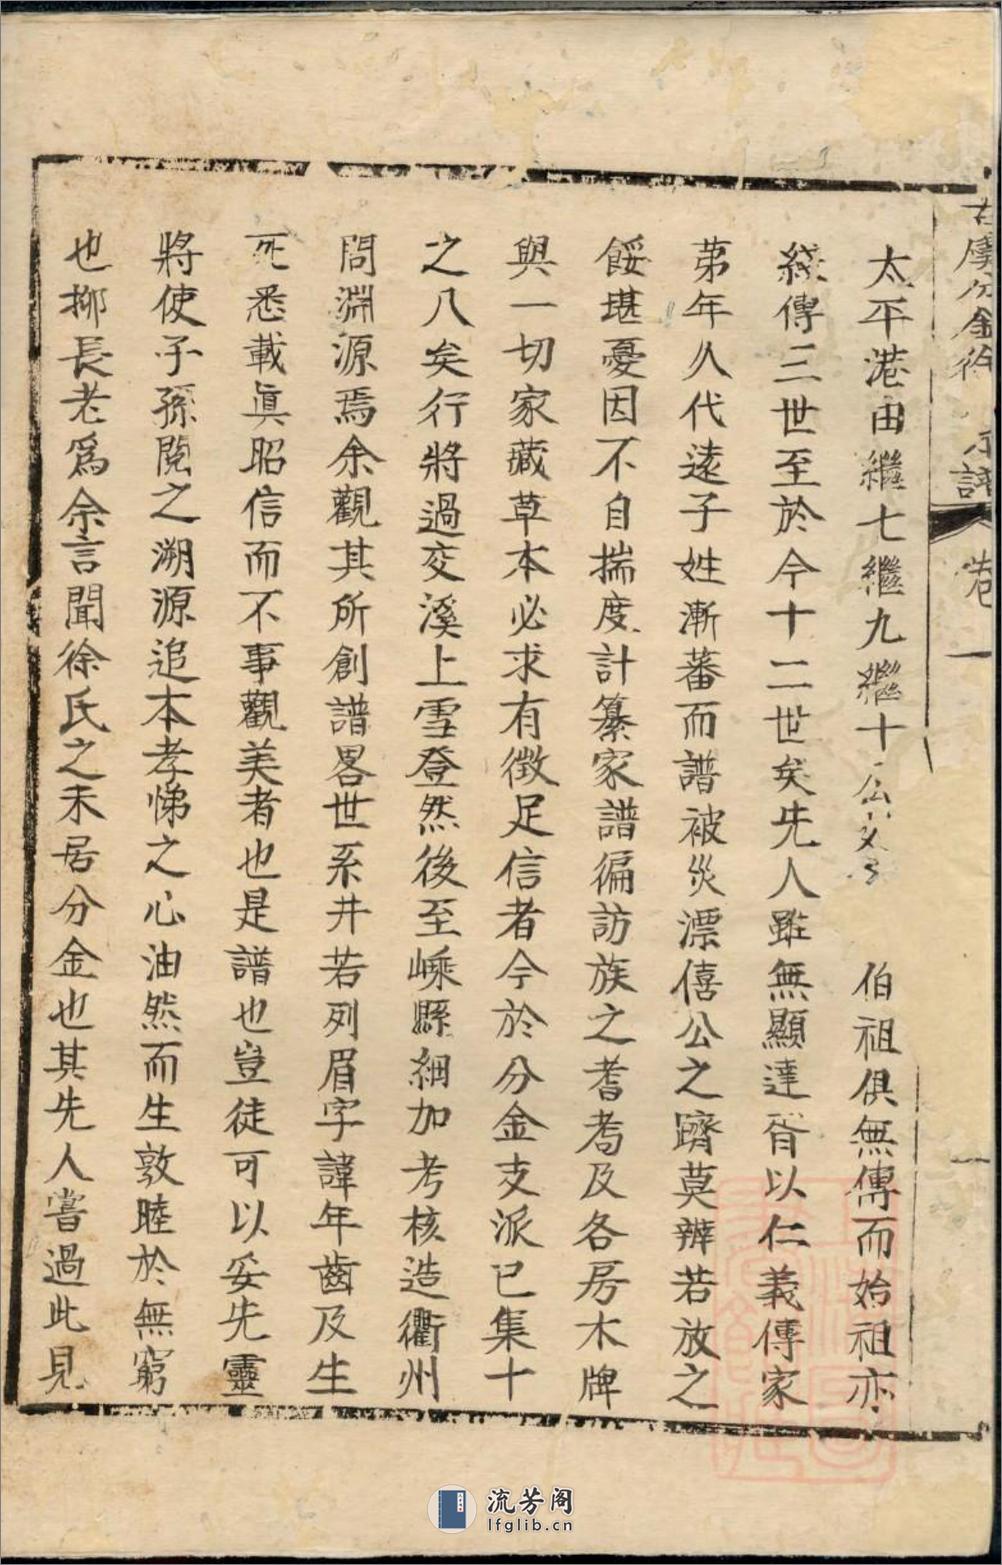 古虞分金徐氏宗譜 卷一 一
太平港由繼七繼九繼十公 伯祖俱無傳而始祖亦
綫傳三世至於今十二世矣先人雖無顯達胥以仁義傳家
苐年久代遠子姓漸蕃而譜被災漂僖公之躋莫辨若放之
餒堪憂因不自揣度計纂家譜徧訪族之耆耇及各房木牌
與一切家藏草本必求有徵足信者今於分金支派已集十
之八矣行將過交溪上雪登然後至嵊縣細加考核造衢州
問淵源焉余觀其所創譜畧世系井若列眉字諱年齒及生
死悉載眞昭信而不事觀美者也是譜也豈徒可以妥先靈
將使子孫閱之溯源追本孝悌之心油然而生敦睦於無窮
也抑長老爲余言聞徐氏之未居分金也其先人嘗過此見
流芳阁
lfglib.cn